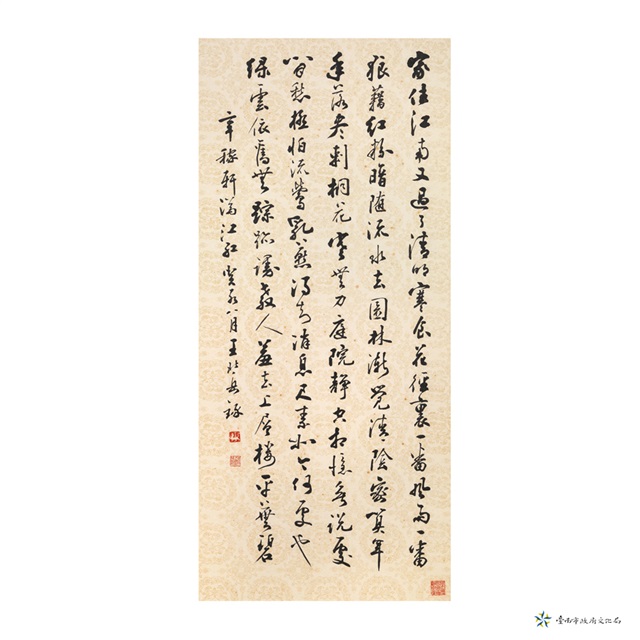 家住江南又過了清明寒食花徑裏一番風雨一番
狼藉紅粉暗隨流水去園林漸覺清陰密算年
年落盡刺桐花寒無力庭院靜空相憶無說處
閒愁極怕流鶯乳燕得知消息尺素如今何處也
綠雲依舊無蹤跡謾教人羞去上層樓平蕪碧
辛稼軒滿江紅癸亥八月王北岳錄
臺南市政府文化局